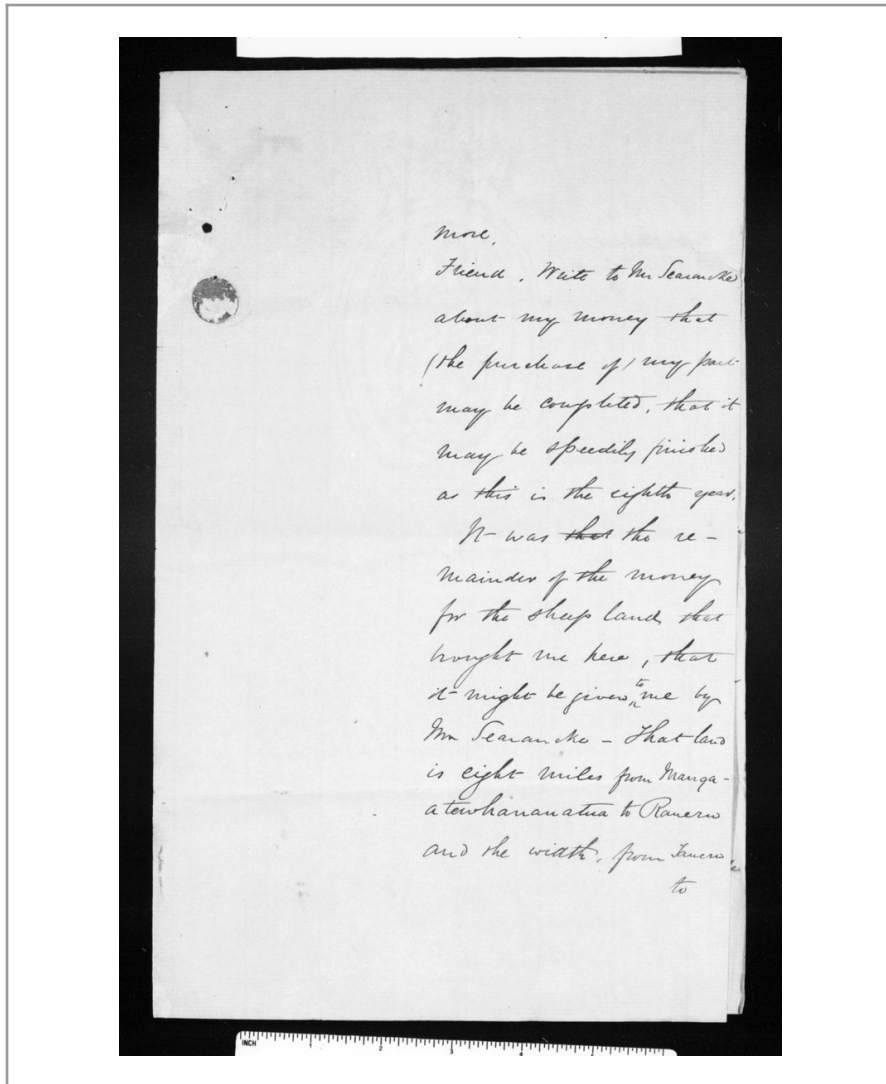 more.
Friend. Write to Mr Searancke
about my money that
(the purchase of) my part
may be completed, that it
may be speedily finished
as this is the eighth year.
It was that the re-
mainder of the money
for the sheep land that
brought me here, that
it might be given to me by
Mr Searancke - That land
is eight miles from Manga-
atewhananatua to Raueru
and the width, from
to
INCH 1 2 3 4